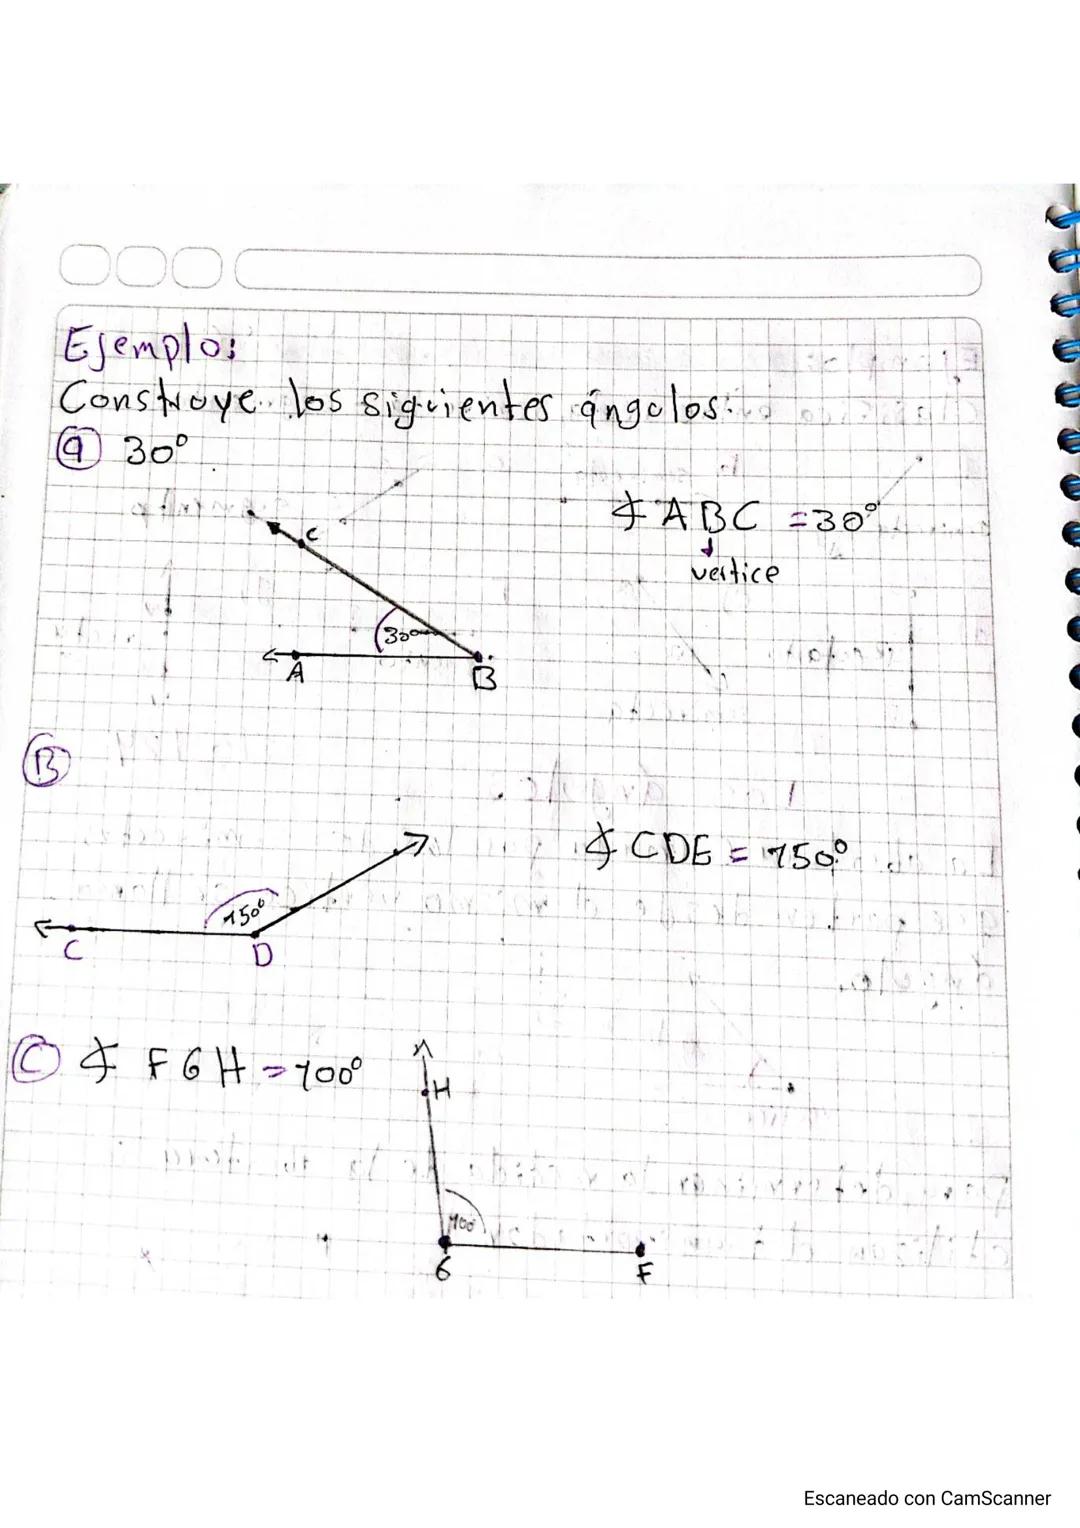 Ejemplo:
Construye los siguientes ángulos:
a 30°
∡ ABC = 30°
vertice
C
30°
A
B
B
∡ CDE = 150°
150°
C
D
C ∡ FGH = 100°
H
100
G
F
Escaneado con CamScanner